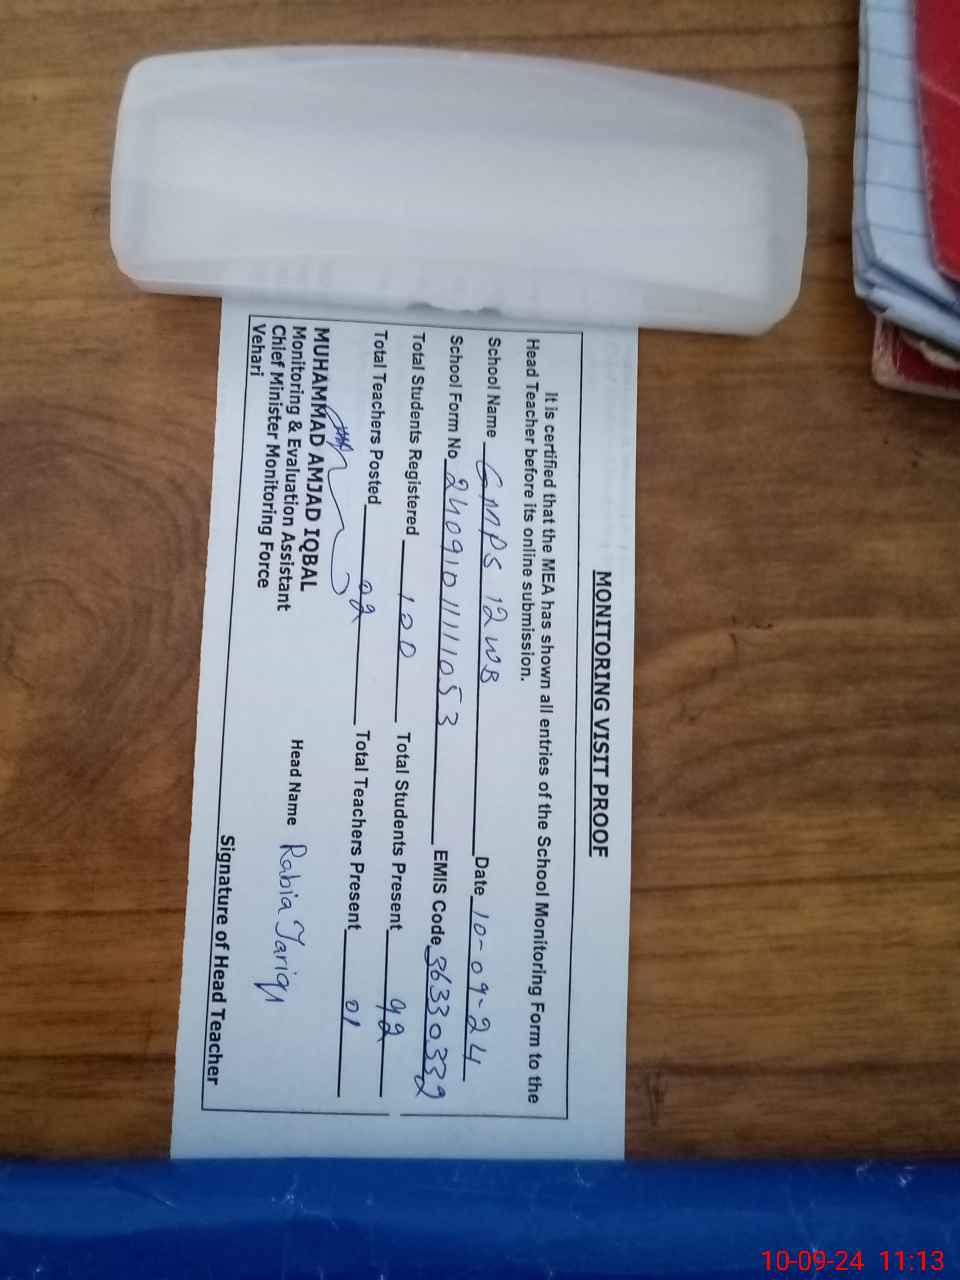 MONITORING VISIT PROOF
It is certified that the MEA has shown all entries of the School Monitoring Form to the
Head Teacher before its online submission.
School Name GMPS 12 WB Date 10-09-24
School Form No 240910111111053 EMIS Code 36330332
Total Students Registered 100 Total Students Present 92
Total Teachers Posted 02 Total Teachers Present 01
MUHAMMAD AMJAD IQBAL
Monitoring & Evaluation Assistant
Chief Minister Monitoring Force
Vehari
Head Name Rabia Tariq
Signature of Head Teacher
10-09-24 11:13